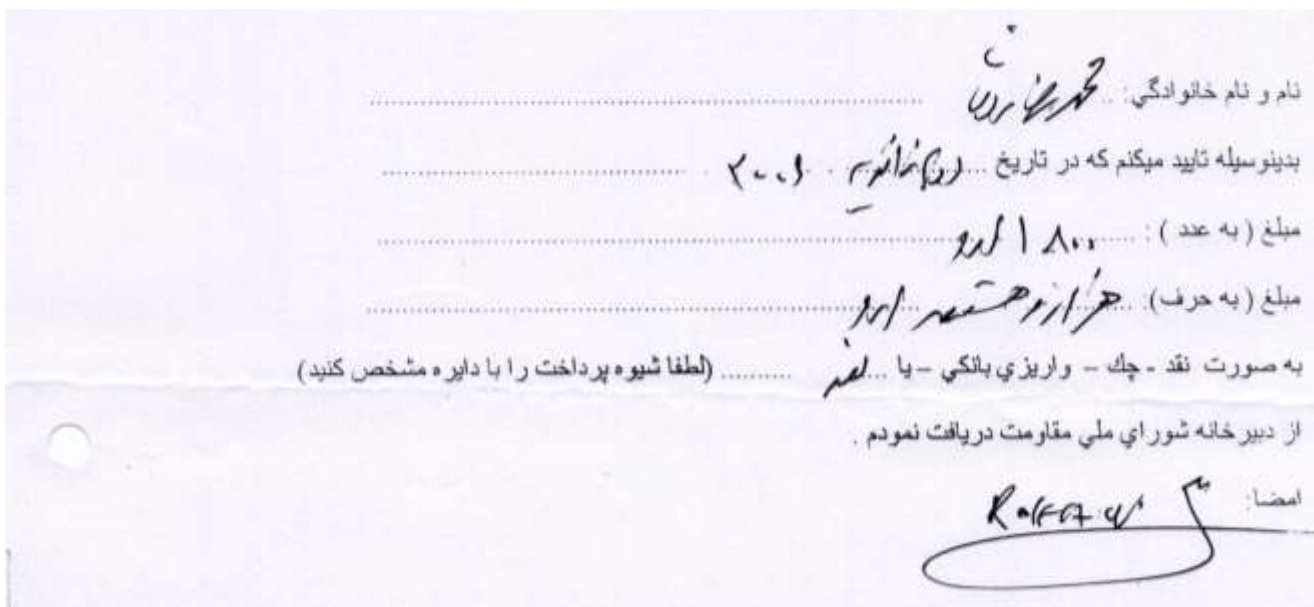 نام و نام خانوادگي: محمد رضا روحانی
بدينوسيله تاييد ميكنم كه در تاريخ ... ژانویه ۲۰۰۶
مبلغ ( به عدد ) : ۱۸۰۰ اورو
مبلغ ( به حرف): هزار و هشتصد اورو
به صورت نقد - چك - واريزي بانكي - يا ... نقد ... (لطفا شيوه پرداخت را با دايره مشخص كنيد)
از دبيرخانه شوراي ملي مقاومت دريافت نمودم .
امضا: